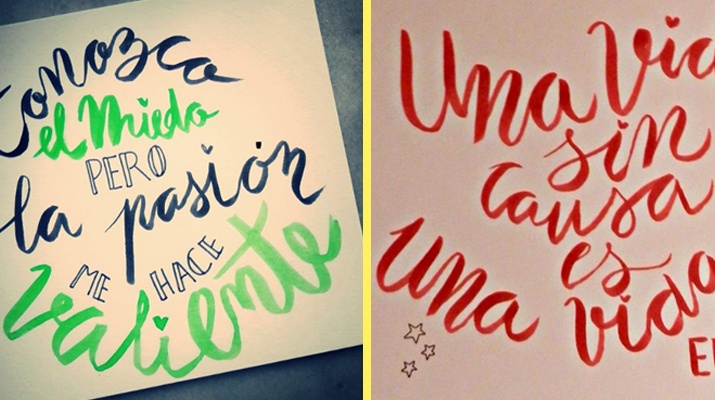 Conozca
el Miedo
PERO
la pasión
ME HACE
valiente
Una Vid
sin
causa
es
una vida
E